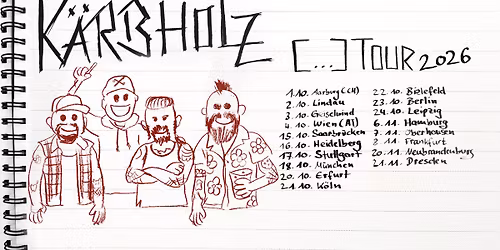 KÄRBHOLZ
[...] TOUR 2026
1.10. Aarburg (CH)
2.10. Lindau
3.10. Geiselwind
4.10. Wien (AT)
15.10. Saarbrücken
16.10. Heidelberg
17.10. Stuttgart
18.10. München
20.10. Erfurt
21.10. Köln
22.10. Bielefeld
23.10. Berlin
24.10. Leipzig
6.11. Hamburg
7.11. Oberhausen
8.11. Frankfurt
20.11. Neubrandenburg
21.11. Dresden